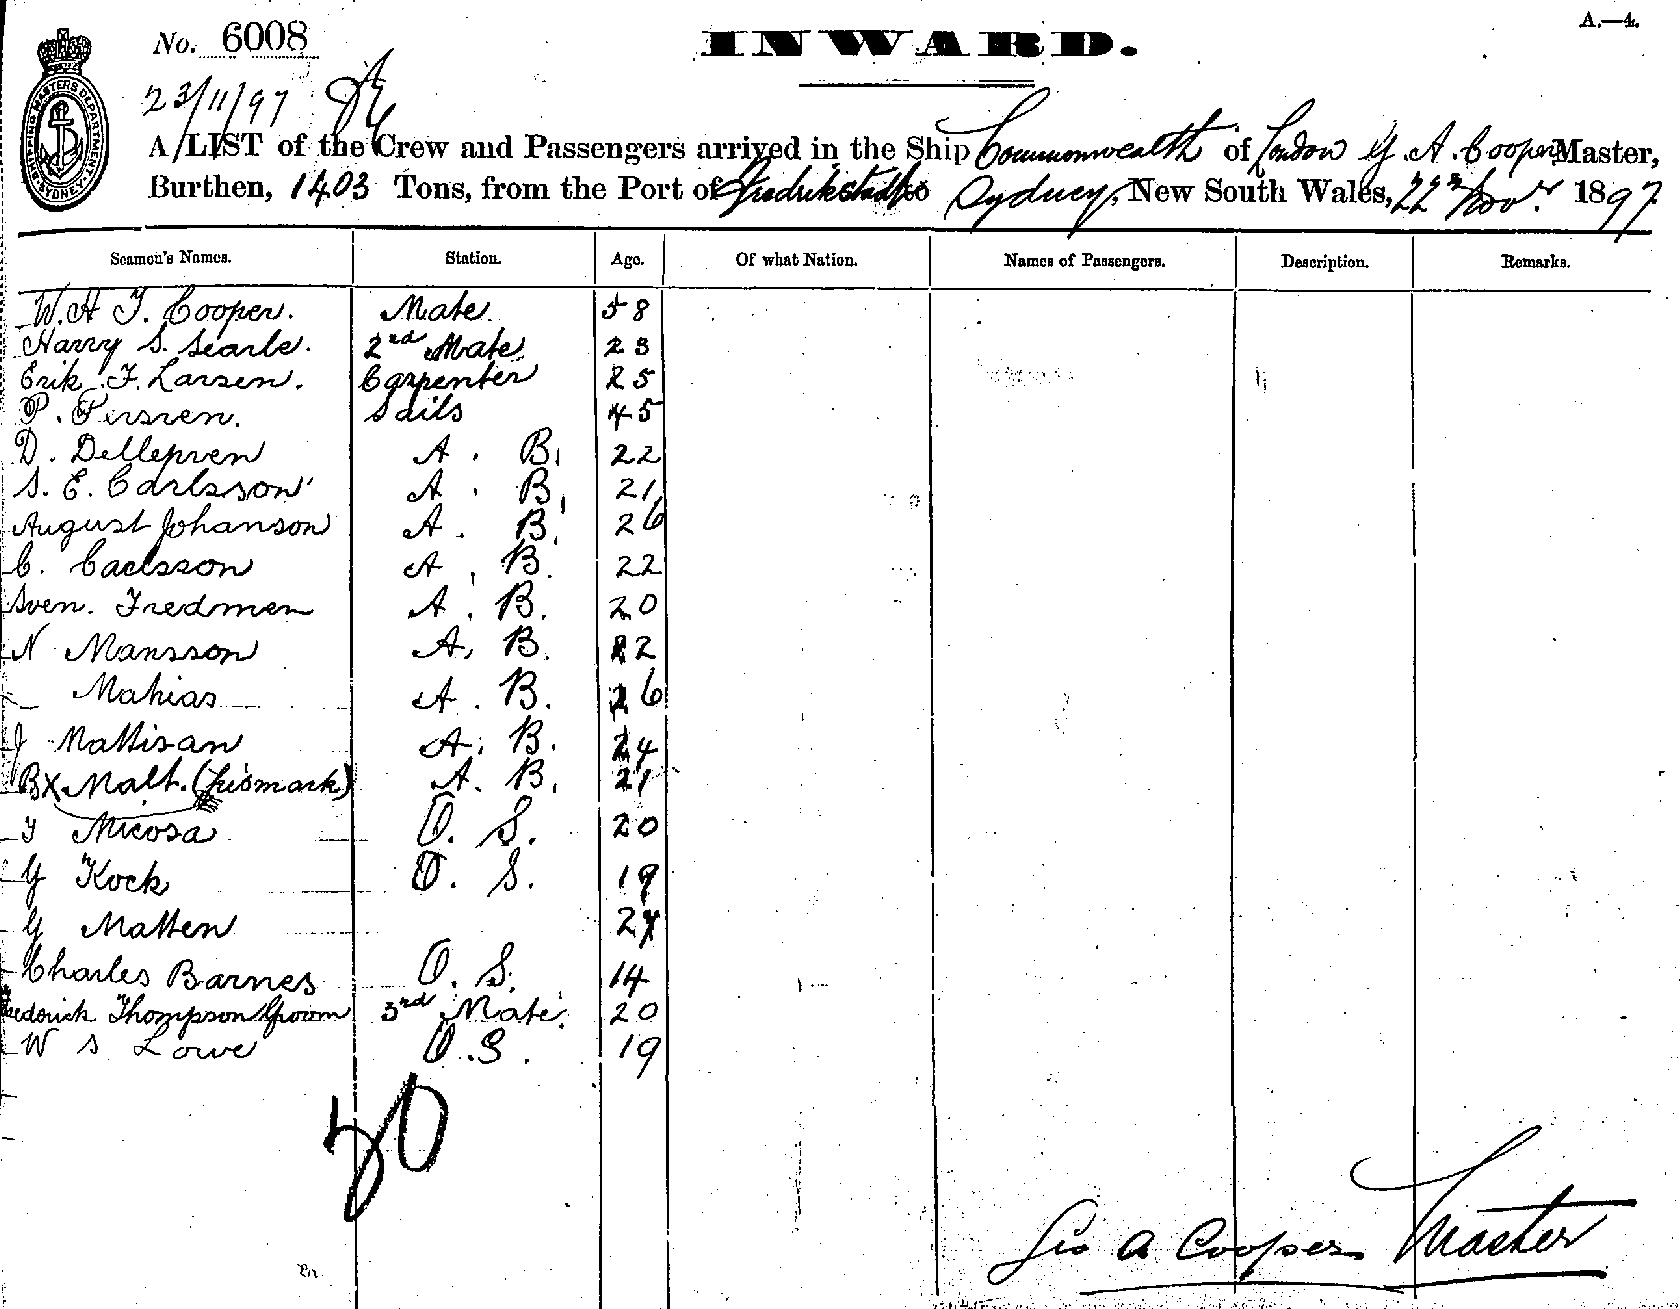 No. 6008
INWARD.
A.—4.
23/11/97
A LIST of the Crew and Passengers arrived in the Ship Commonwealth of London G. A. Cooper Master,
Burthen, 1403 Tons, from the Port of Fredrikstad to Sydney, New South Wales, 22nd Novr 1897
Seamen's Names. Station. Age. Of what Nation. Names of Passengers. Description. Remarks.
W. H J. Cooper. Mate. 58
Harry S. Searle. 2nd Mate 23
Erik F. Larsen. Carpenter 25
P. Sails 45
D. A. B. 22
S. E. Carlsson A. B. 21
August Johanson A. B. 26
C. Caelsson A. B. 22
Sven. Fredmen A. B. 20
N Mansson A. B. 22
Mahias A. B. 26
J Mattisan A. B. 24
BX Malt. (bismark) A. B. 21
J Micosa O. S. 20
G Kock O. S. 19
G Matten
Charles Barnes O. S. 14
Frederick Thompson 3rd Mate. 20
W S Lowe O. S. 19
20
Geo A Cooper Master